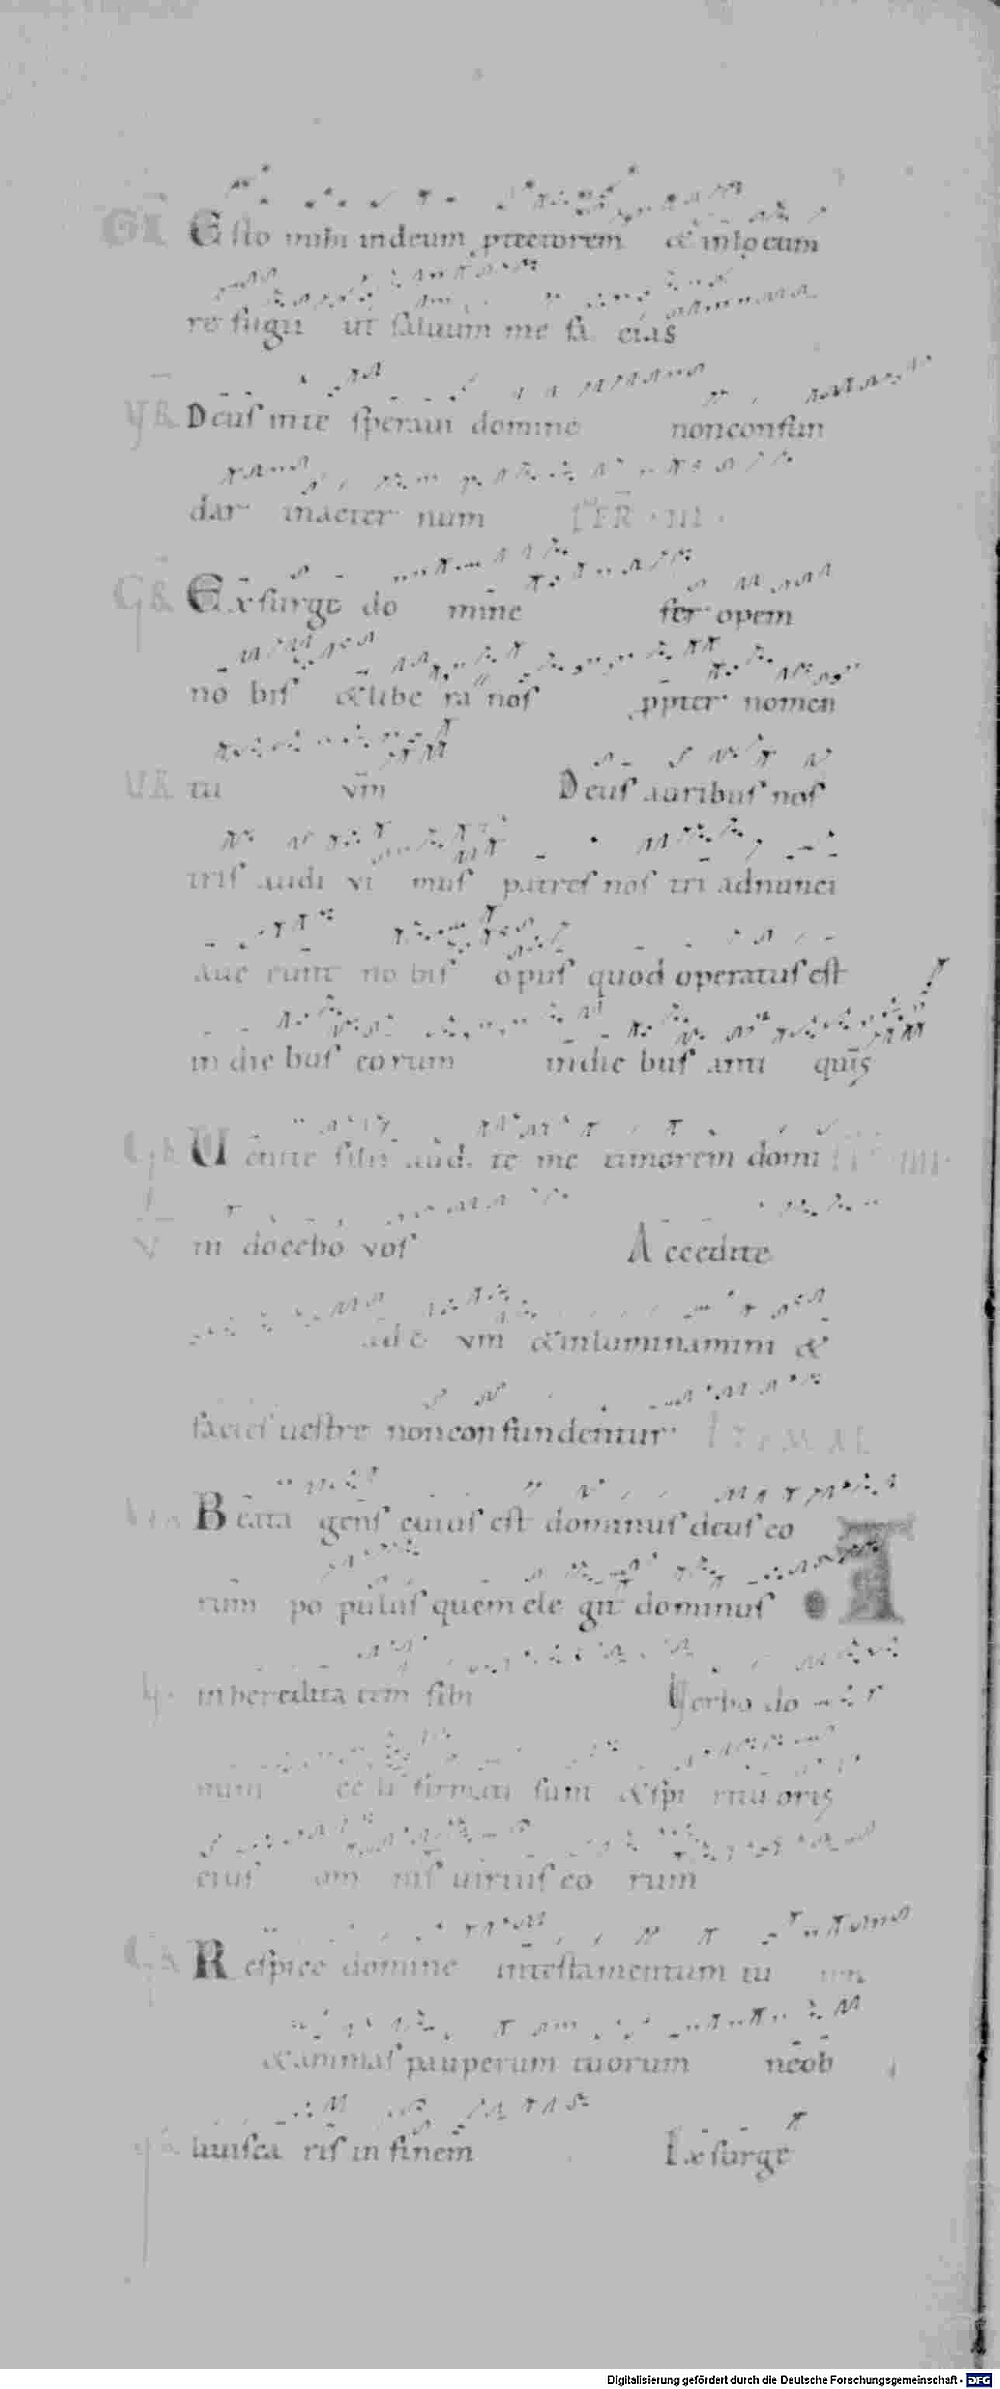 GR Esto mihi indeum ptectorem & inlocum
re fugii ut saluum me fa cias
VR Deus inte speraui domine nonconfun
dar inaeter num FER · III ·
GR Exsurge do mine fer opem
no bis & libe ra nos ppter nomen
VR tu um Deus auribus nos
tris audi vi mus patres nos tri adnunci
aue runt no bis opus quod operatus est
in die bus eorum indie bus anti quis
GR Uenite filii aud. te me timorem domi FR IIII
V ni docebo vos Accedite
ad e um & inluminamini &
facies uestre nonconfundentur·
GR Beata gens cuius est dominus deus eo
rum po pulus quem ele git dominus
inheredita tem sibi Verbo do
mini ce li firmati sunt & spi ritu oris
eius om nis uirtus eo rum
GR Respice domine intestamentum tu um
& animas pauperum tuorum neob
VR liuisca ris in finem Exsurge
Digitalisierung gefördert durch die Deutsche Forschungsgemeinschaft - DFG